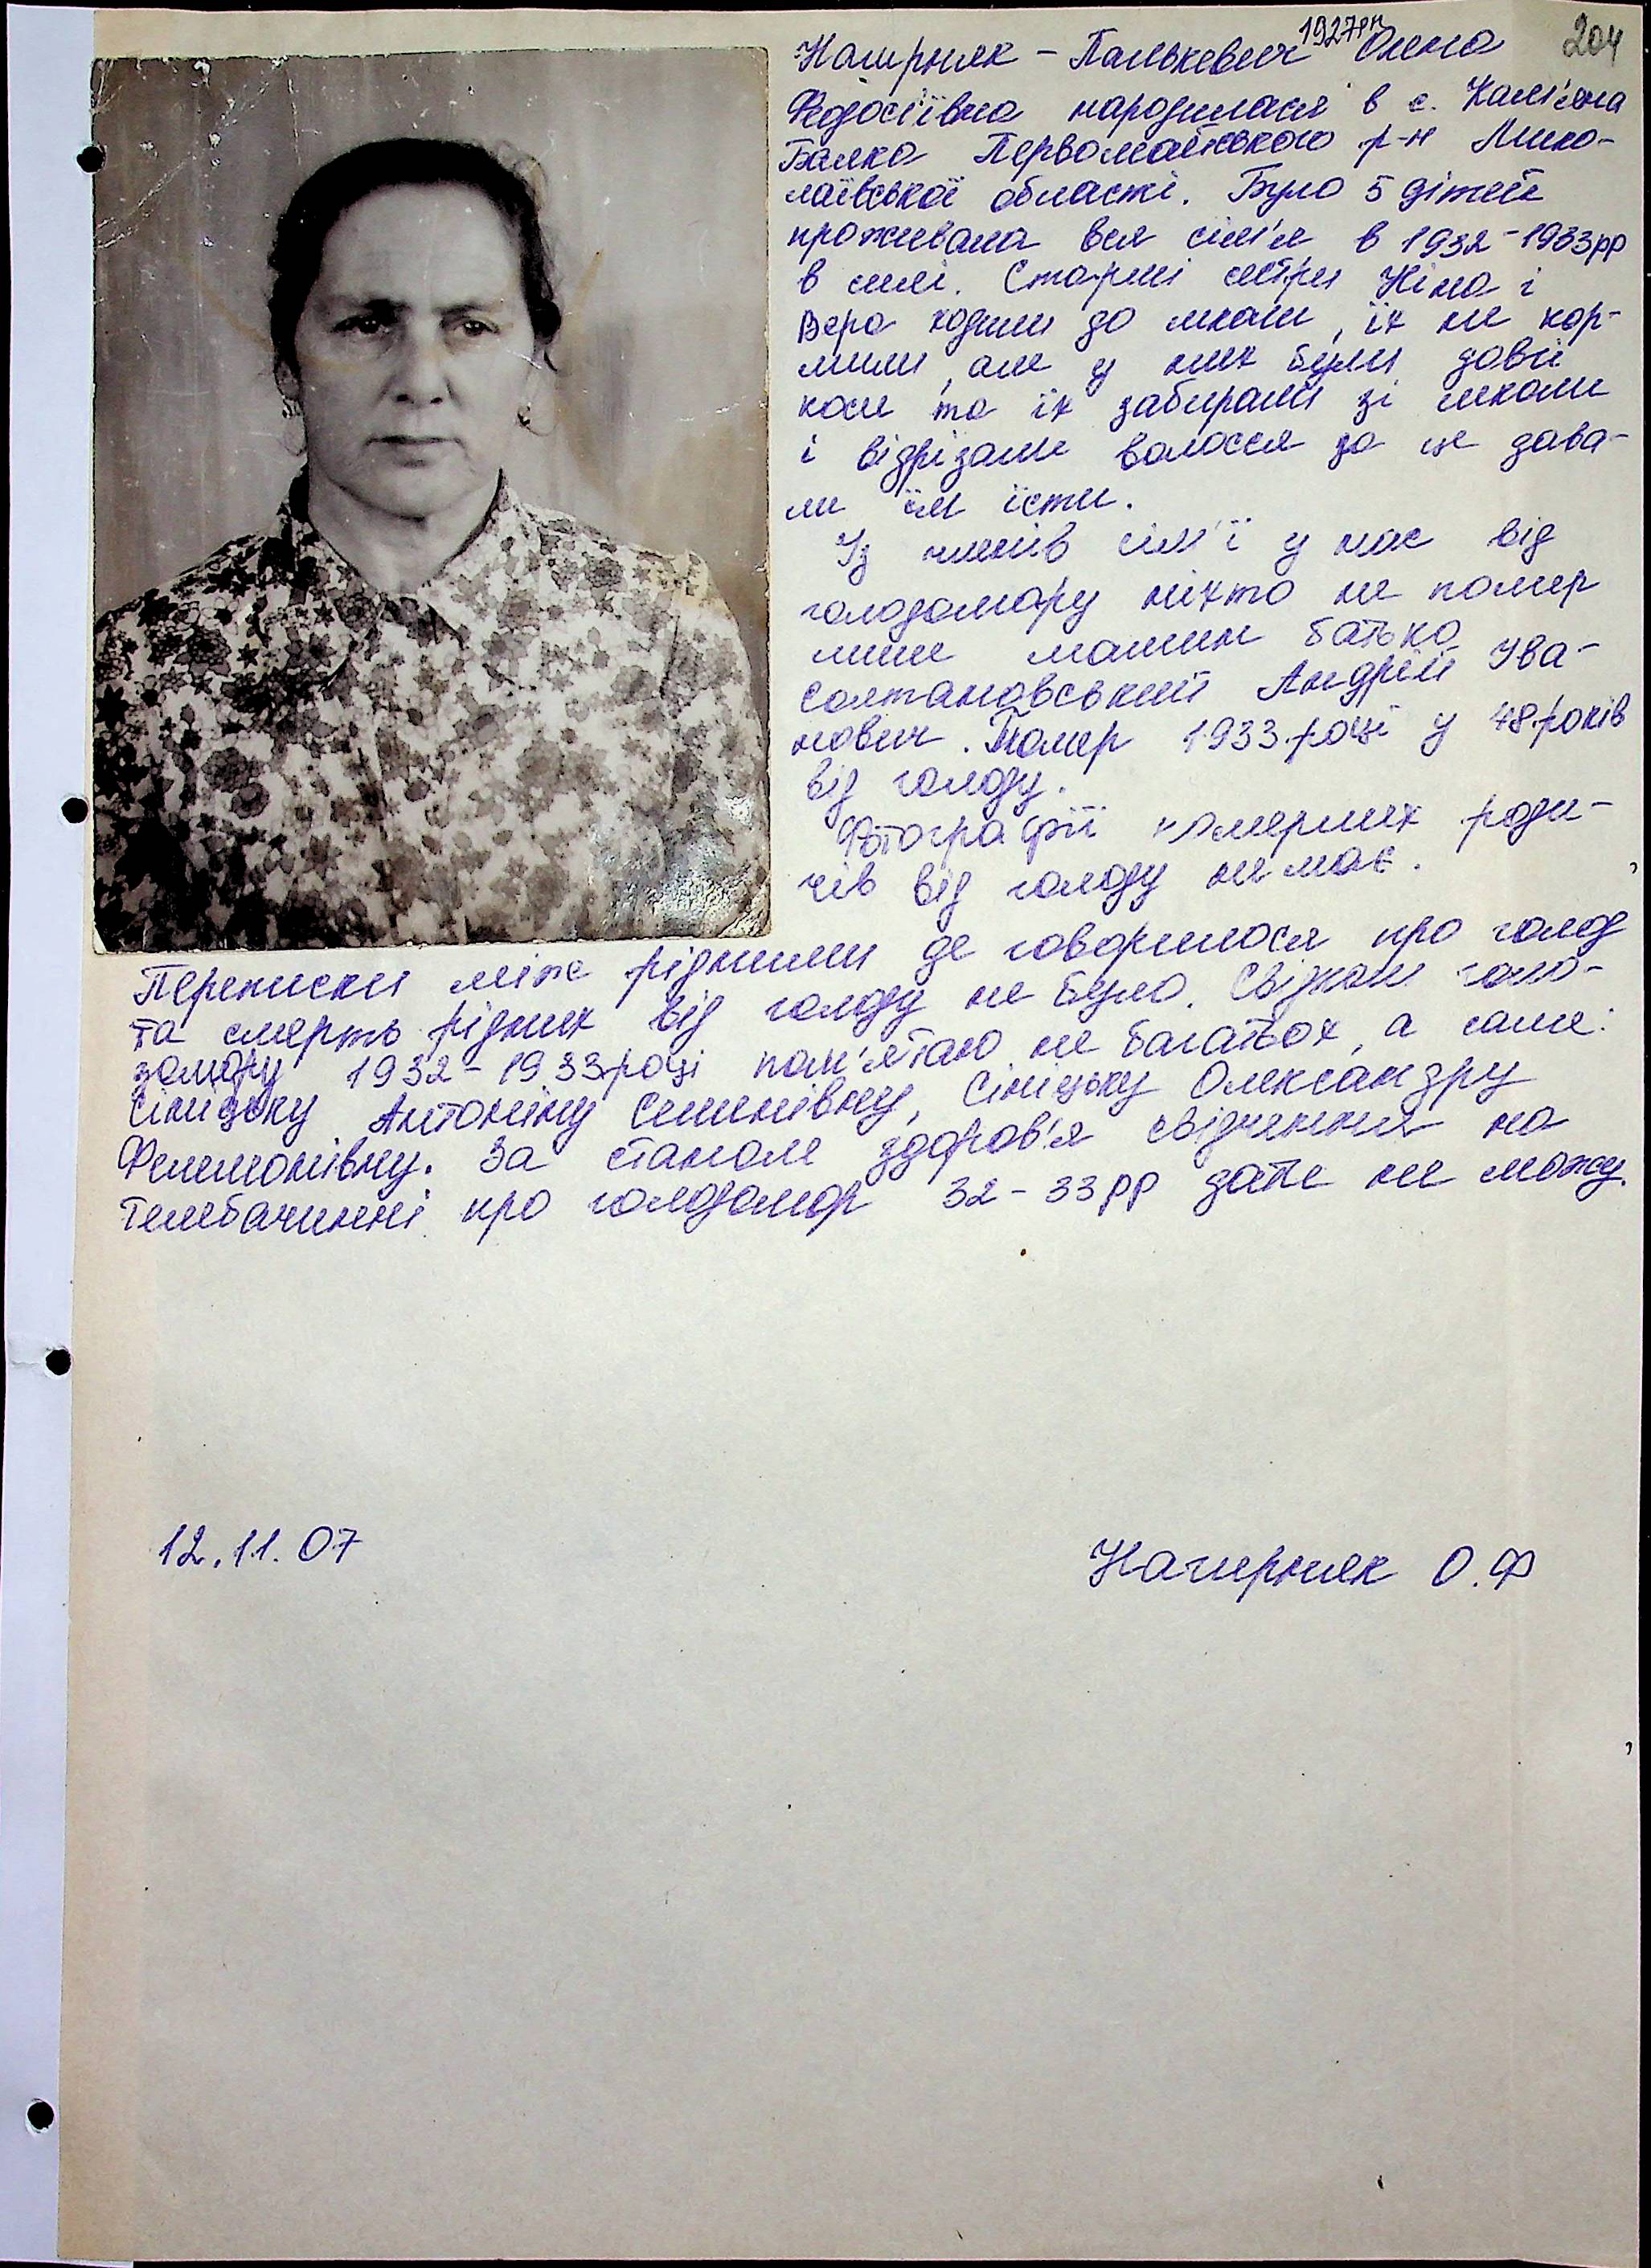 204
1927рн
Нагирняк - Палькевич Олена
Федосіївна народилася в с. Кам'яна
Балка Первомайського р-н Мико-
лаївської області. Було 5 дітей
проживала вся сім'я в 1932-1933рр
в селі. Старші сестри Ніна і
Вера ходили до школи, їх не кор-
мили, але у них були довгі
коси то їх забирали зі школи
і відрізали волосся за це дава-
ли їм їсти.
Із членів сім'ї у нас від
голодомору ніхто не помер
лише мамин батько
Солтановський Андрій Іва-
нович. Помер 1933 році у 48 років
від голоду.
Фотографії померших роди-
чів від голоду немає.
Переписки між рідними де говорилося про голод
та смерть рідних від голоду не було. Свідками голо-
домору 1932-1933 році пам'ятаю не багатьох, а саме:
Сініцьку Антоніну Семенівну, Сініцьку Олександру
Филимонівну. За станом здоров'я свідчення на
телебаченні про голодомор 32-33рр дати не можу.
12.11.07
Нагирняк О.Ф